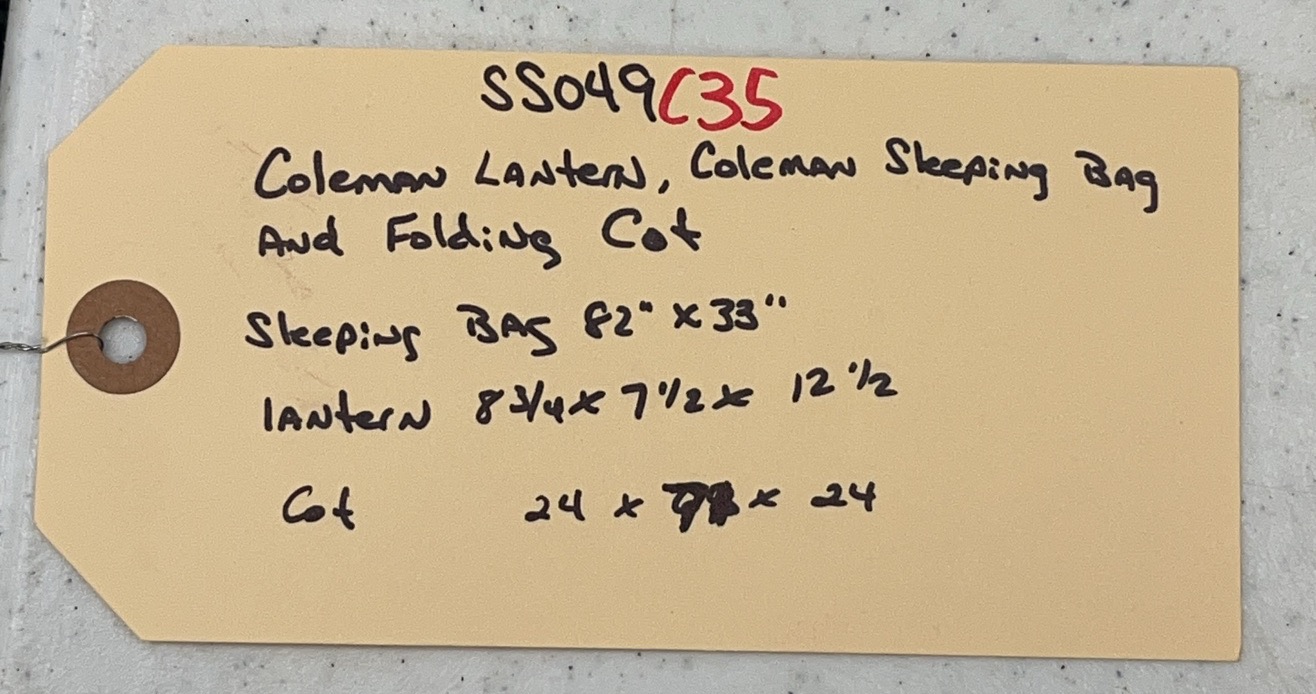 SS049C35
Coleman Lantern, Coleman Sleeping Bag
And Folding Cot
Sleeping Bag 82" x 33"
lantern 8 3/4 x 7 1/2 x 12 1/2
Cot 24 x x 24